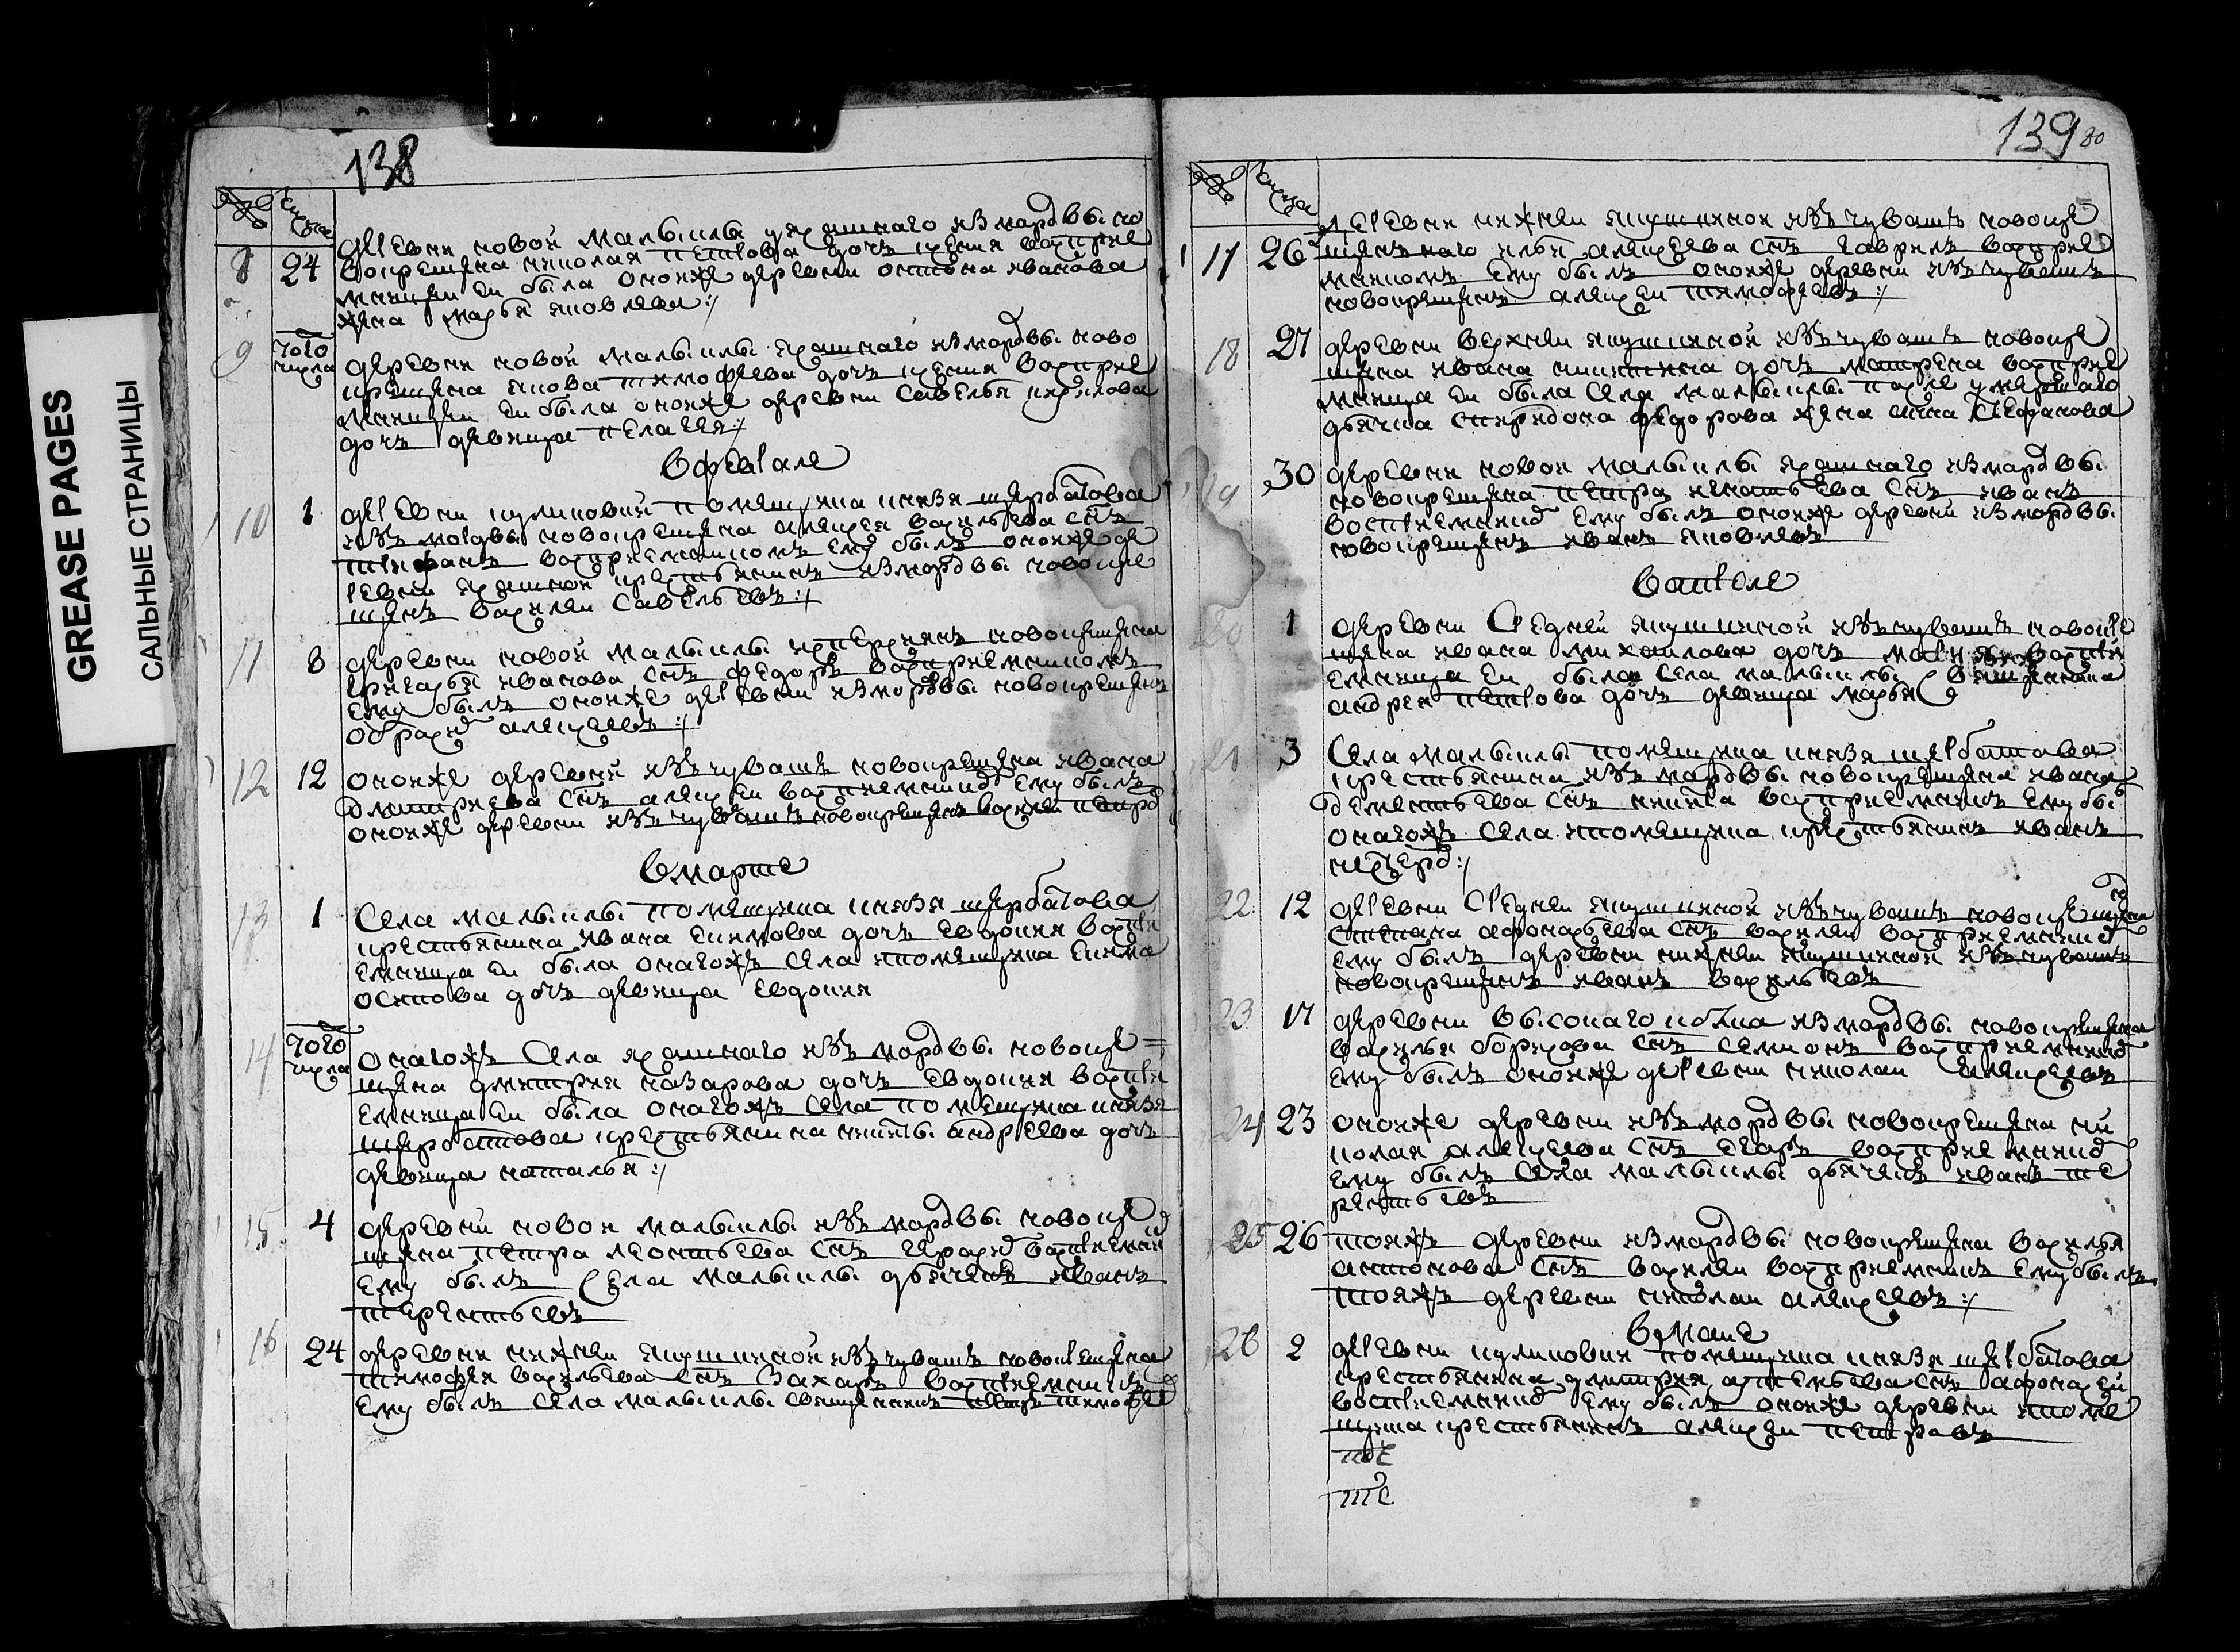 GREASE PAGES
САЛЬНЫЕ СТРАНИЦЫ
138
числа
8 24
деревни новой малыклы ясашнаго измордвы но
вокрещена николая петрова дочь ксения воспрее
мницеи еи была оноиже деревни ивана
жена марья яковлева :/
9 того числа
деревни новой малыклы ясашнаго измордвы ново
крещена якова тимофеева дочь ксения восприе
мницеи еи была оноиже деревни савелья кирилова
дочь девица пелагея :/
вфеврале
10 1
деревни куликовки помещика князя щербатова
изъ мордвы новокрещена алексея васильева снъ
воспреемникомъ ему былъ оноиже де
ревни ясашнои крестьянинъ измордвы новокре
щенъ василеи савельевъ :/
11 8
деревни новой малыклы новокрещена
григорья иванова снъ федоръ воспреемникомъ
ему былъ оноиже деревни измордвы новокрещенъ
алексеевъ :/
12 12
оноиже деревни изъ чувашъ новокрещена ивана
дмитриева снъ алексеи воспреемникъ ему былъ
оноиже деревни изъ чувашъ новокрещенъ василеи петро
вмарте
13 1
села малыклы помещика князя щербатова
крестьянина ивана екимова дочь евдокия воспри
емница еи была оногожъ села помещика екима
осипова дочь девица евдокия
14 того числа
оногожъ села ясашнаго изъ мордвы новокре=
щена дмитрия назарова дочь евдокия воспри
емница еи была оногожъ села помещика князя
щербатова крестьянина никиты андреева дочь
девица наталья :/
15 4
деревни новои малыклы изъ мордвы новокре
щена петра леонтьева снъ герасим восприемни
ему былъ села малыклы дьячекъ иванъ
терентьевъ
16 24
деревни нижнеи якушкинои изъ чувашъ новокрещена
тимофея васильева снъ захаръ восприемникъ
ему былъ села малыклы священникъ петръ тимофее
139 80
числа
17 26
деревни нижнеи якушкинои изъ чувашъ новокре
щенънаго ильи алексеева снъ гаврилъ воспрее
мникомъ ему былъ оноиже деревни изъ чувашъ
новокрещенъ алексеи тимофеевъ :/
18 27
деревни верхнеи якушкинои изъ чувашъ новокре
щена ивана никитина дочь матрена воспрее
мница еи была села малыклы после умершаго
дьячка спиридона федорова жена анна стефанова
19 30
деревни новои малыклы ясашнаго измордвы
новокрещена петра игнатьева снъ иванъ
восприемникъ ему былъ оноиже деревни измордвы
новокрещенъ иванъ яковлевъ
вапреле
20 1
деревни средней якушкинои изъ чувашъ новокре
щена ивана михаилова дочь воспри
емница еи была села малыклы священника
андрея петрова дочь девица марья
21 3
села малыклы помещика князя щербатова
крестьянина изъ мордвы новокрещена ивана
дементьева снъ никита воспреемникъ ему бы
оногожъ села помещика крестьянинъ иванъ
22 12
деревни среднеи якушкинои изъ чувашъ новокрещена
степана афонасьева снъ василеи воспреемникъ
ему былъ деревни нижнеи якушкинои изъ чувашъ
новокрещенъ иванъ васильевъ
23 17
деревни высокаго колка измордвы новокрещена
василья борисова снъ семионъ воспреемникъ
ему былъ оноиже деревни николаи алексеевъ
24 23
оноиже деревни изъ мордвы новокрещена ни
колая алексеева снъ егаръ воспреемникъ
ему былъ села малыклы дьячекъ иванъ те
рентьевъ
25 26
тоижъ деревни измордвы новокрещена василья
антонова снъ василеи воспреемникъ ему былъ
тояжъ деревни николаи алексеевъ :/
вмаие
26 2
деревни куликовки помещика князя щербатова
крестьянина дмитрия артемьева снъ афонасеи
восприемникъ ему былъ оноиже деревни помѣ
щика крестьянинъ алексеи петровъ